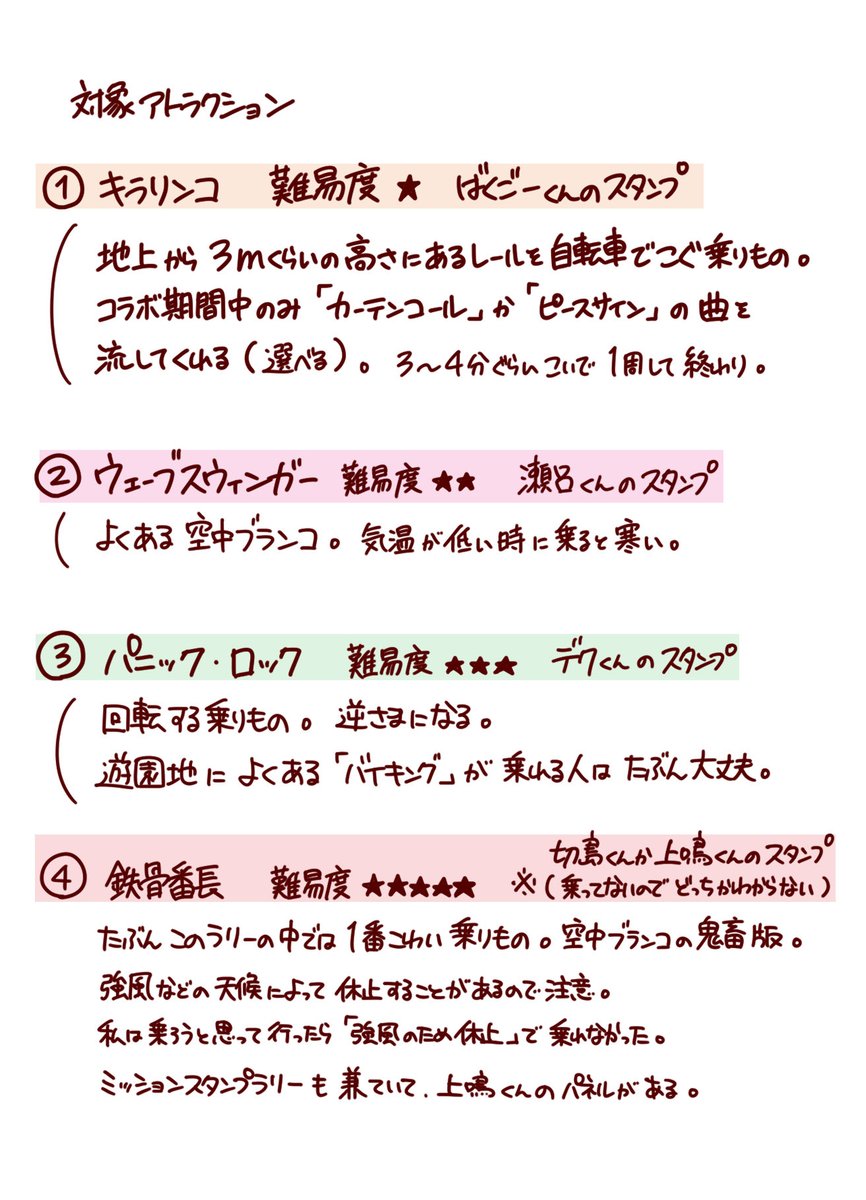 対象アトラクション
① キラリンコ 難易度 ★ ばくごーくんのスタンプ
地上から3mくらいの高さにあるレールを自転車でこぐ乗りもの。
コラボ期間中のみ「カーテンコール」か「ピースサイン」の曲を
流してくれる(選べる)。3〜4分ぐらいこいで1周して終わり。
② ウェーブスウィンガー 難易度 ★★ 瀬呂くんのスタンプ
よくある空中ブランコ。気温が低い時に乗ると寒い。
③ パニック・ロック 難易度 ★★★ デクくんのスタンプ
回転する乗りもの。逆さまになる。
遊園地によくある「バイキング」が乗れる人はたぶん大丈夫。
④ 鉄骨番長 難易度 ★★★★★ 切島くんか上鳴くんのスタンプ
※(乗ってないのでどっちかわからない)
たぶんこのラリーの中では1番こわい乗りもの。空中ブランコの鬼畜版。
強風などの天候によって休止することがあるので注意。
私は乗ろうと思って行ったら「強風のため休止」で乗れなかった。
ミッションスタンプラリーも兼ていて、上鳴くんのパネルがある。